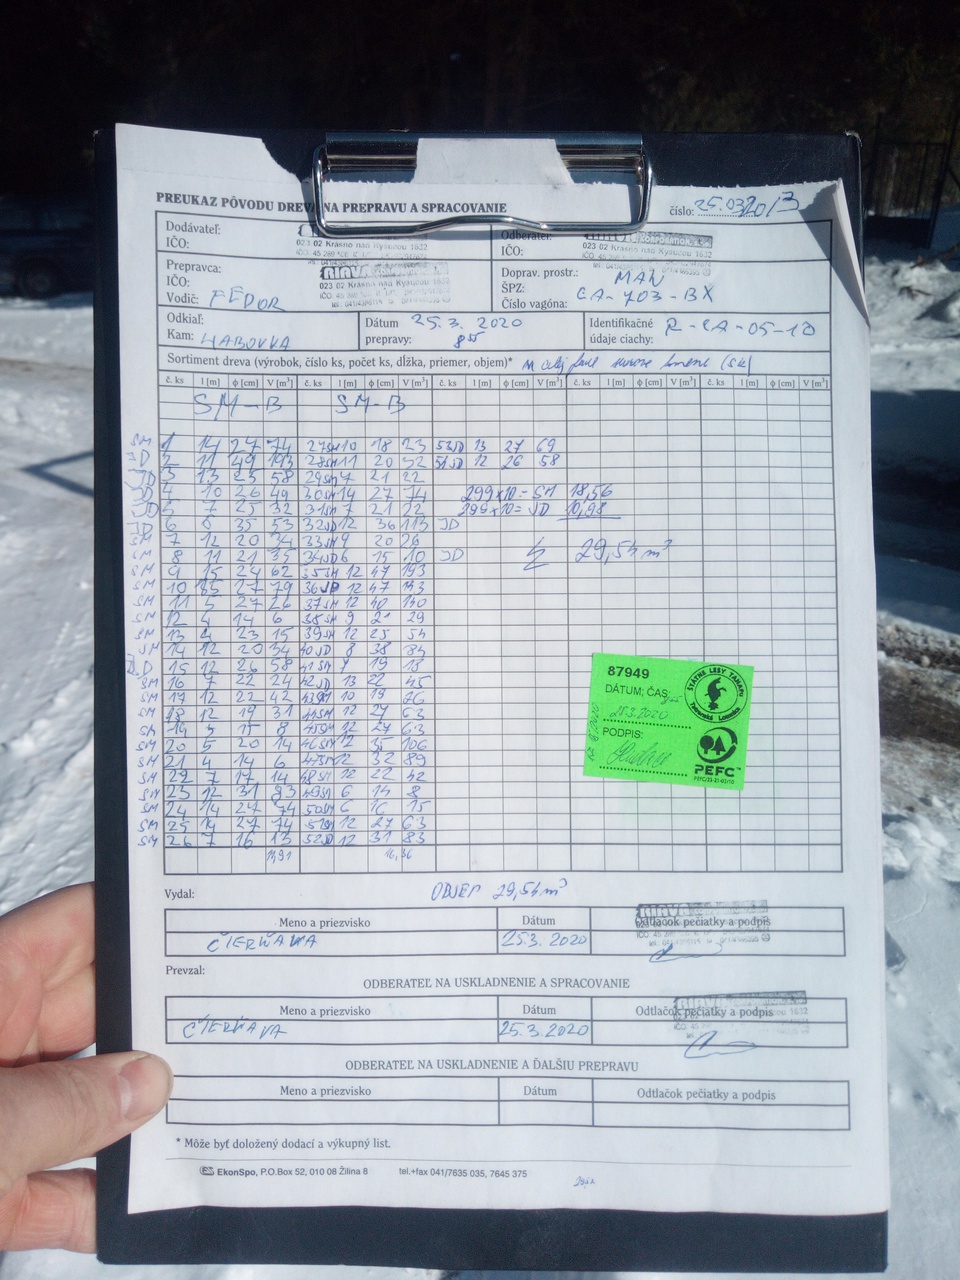 PREUKAZ PÔVODU DREVA NA PREPRAVU A SPRACOVANIE
číslo: 25.03.20/3
Dodávateľ:
IČO:
023 02 Krásno nad Kysucou 1632
Odberateľ:
IČO:
CORPORATION
023 02 Krásno nad Kysucou 1632
Prepravca:
IČO:
Vodič: FEDOR
RIAVA
023 02 Krásno nad Kysucou 1632
Doprav. prostr.: MAN
ŠPZ: CA-703-BX
Číslo vagóna:
Odkiaľ:
Kam: HABOVKA
Dátum prepravy: 25.3. 2020
8
Identifikačné údaje ciachy: R-CA-05-10
Sortiment dreva (výrobok, číslo ks, počet ks, dĺžka, priemer, objem)*
č. ks l [m] ϕ [cm] V [m³] č. ks l [m] ϕ [cm] V [m³] č. ks l [m] ϕ [cm] V [m³] č. ks l [m] ϕ [cm] V [m³] č. ks l [m]
SM-B SM-B
SM 1 14 27 74 27 SM 10 18 23 53 JD 13 27 69
JD 2 11 49 193 28 SM 11 20 32 54 JD 12 26 58
JD 3 13 25 58 29 SM 7 21 22
JD 4 10 26 49 30 SM 14 27 74 299x10=- SM 18,56
JD 5 7 25 32 31 SM 7 21 22 399x10= JD 10,98
JD 6 35 53 32 JD 12 36 113 JD
SM 7 12 20 34 33 SM 9 20 26
SM 8 11 21 35 34 JD 6 15 10 JD 29,54 m³
SM 9 15 24 62 35 SM 12 47 193
SM 10 27 79 36 JD 12 47
SM 11 5 27 26 37 SM 12 40 140
SM 12 4 14 6 38 SM 9 29
SM 13 4 23 15 39 SM 12 25 54
SM 14 12 20 34 40 JD 8 38 84
JD 15 12 26 58 41 SM 19 18
SM 16 7 22 24 42 JD 13 22 45
SM 17 12 22 42 43 SM 10 19 26
SM 18 12 19 31 44 SM 12 27 63
SM 19 5 15 8 45 SM 12 27 63
SM 20 5 20 14 46 SM 12 35 106
SM 21 4 14 6 47 SM 12 32 89
SM 22 7 17 14 48 SM 12 22 42
SM 23 12 31 83 49 SM 6 14 8
SM 24 14 27 74 50 SM 6 16 15
SM 25 14 27 74 51 SM 12 27 63
SM 26 7 16 13 52 JD 12 31 83
16,36
87949
DÁTUM; ČAS:
25.3.2020
PODPIS:
ŠTÁTNE LESY TANAPU
Tatranská Lomnica
PEFC™
Vydal:
OBJEM 29,54 m³
Meno a priezvisko Dátum Odtlačok pečiatky a podpis
ČIERŇAVA 25.3. 2020
RIAVA
Prevzal:
ODBERATEĽ NA USKLADNENIE A SPRACOVANIE
Meno a priezvisko Dátum Odtlačok pečiatky a podpis
ČIERŇAVA 25.3.2020
RIAVA
ODBERATEĽ NA USKLADNENIE A ĎALŠIU PREPRAVU
Meno a priezvisko Dátum Odtlačok pečiatky a podpis
* Môže byť doložený dodací a výkupný list.
EkonSpo, P.O.Box 52, 010 08 Žilina 8 tel.+fax 041/7635 035, 7645 375